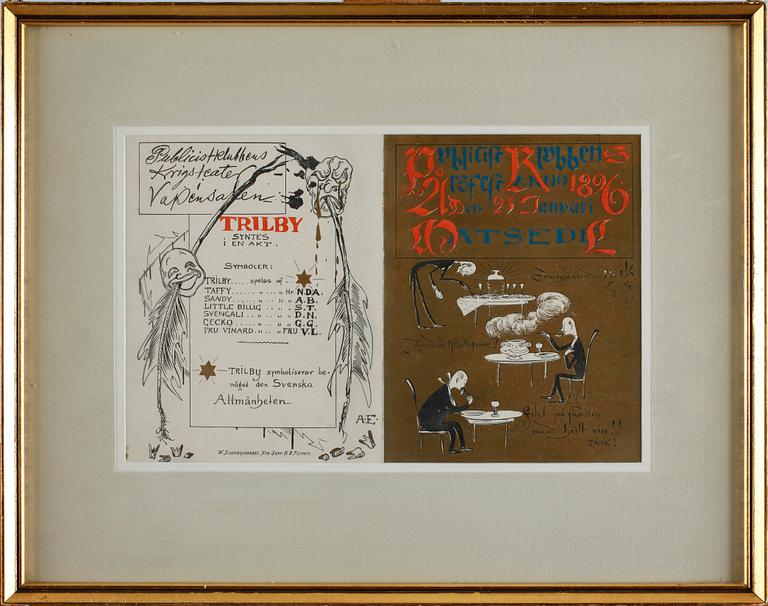 Publicistklubbens
Krigsteater
Vapensalen
TRILBY
SYNTES
I EN AKT.
SYMBOLER:
TRILBY..... spelas af
TAFFY..... „ „ Hr N.D.A.
SANDY ..... „ „ „ A.B.
LITTLE BILLIG .. „ „ „ S.T.
SVENGALI ..... „ „ „ D.N.
GECKO ..... „ „ „ G.G.
FRU VINARD .. „ „ FRU V.L.
TRILBY symboliserar be-
näget den Svenska
Allmänheten
A-E-
Publicist Klubbens
Årsfest ANNO 1896
Den 25 Januari
MATSEDEL
med hvitt vin!!
TANK!